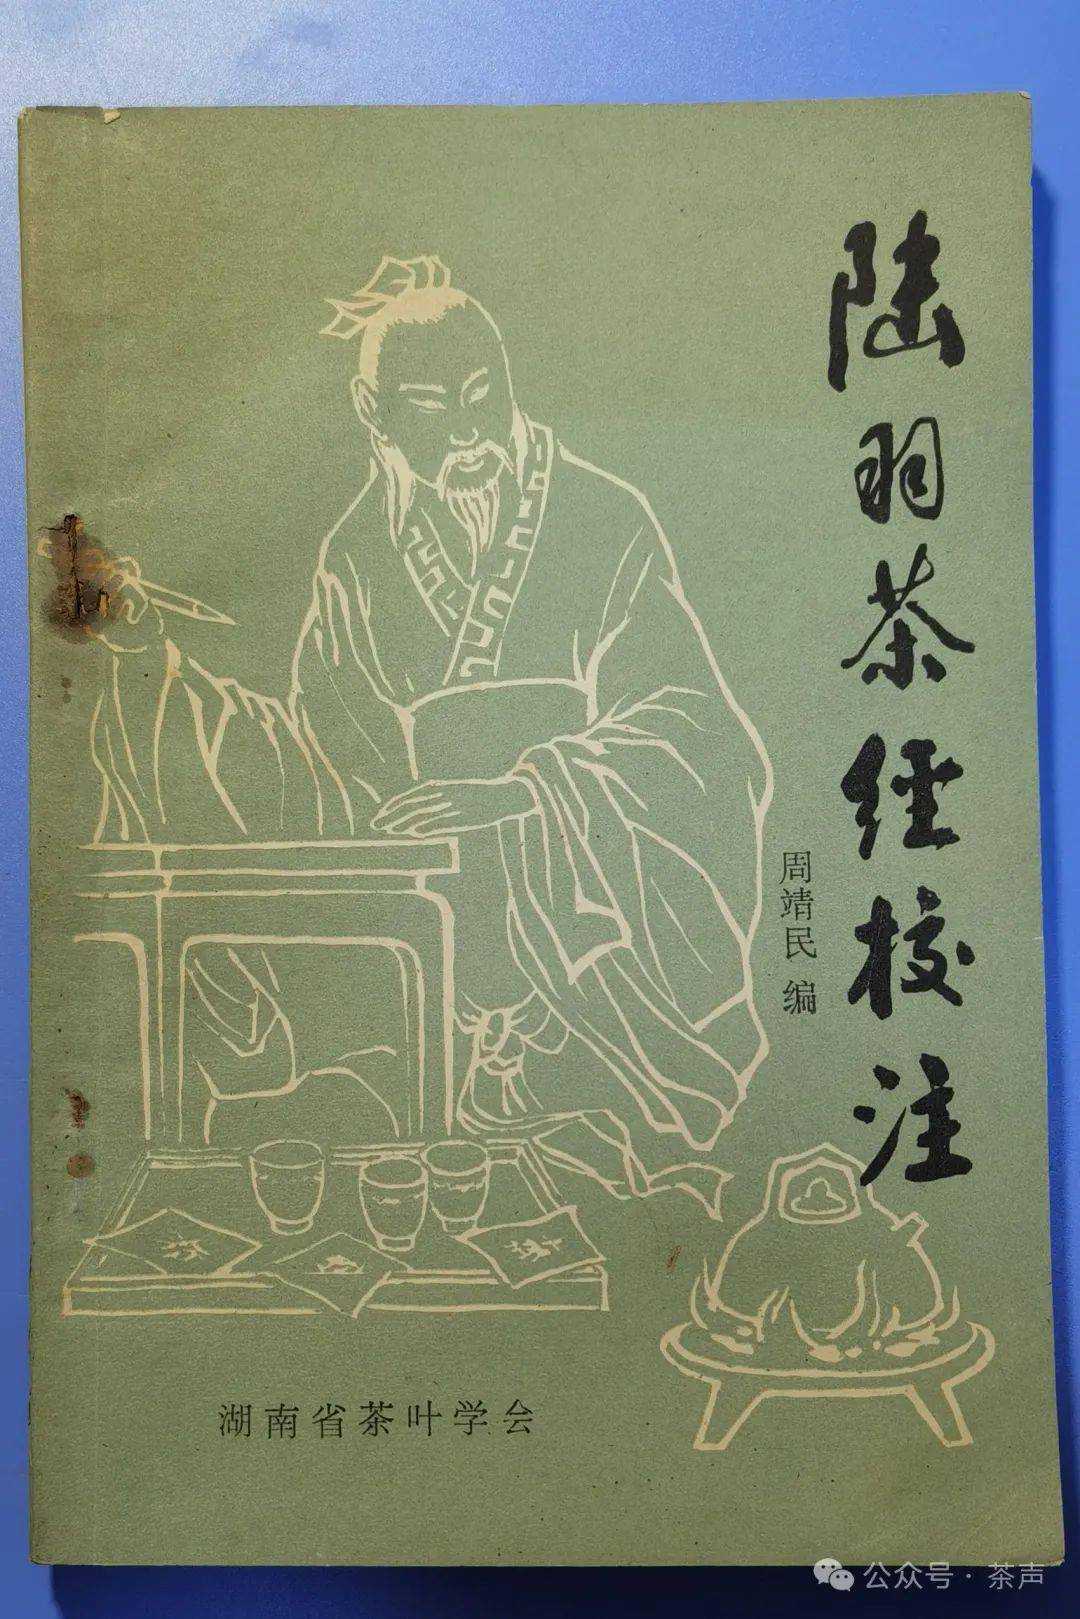 陆羽茶经校注
周靖民 编
湖南省茶叶学会
公众号·茶声